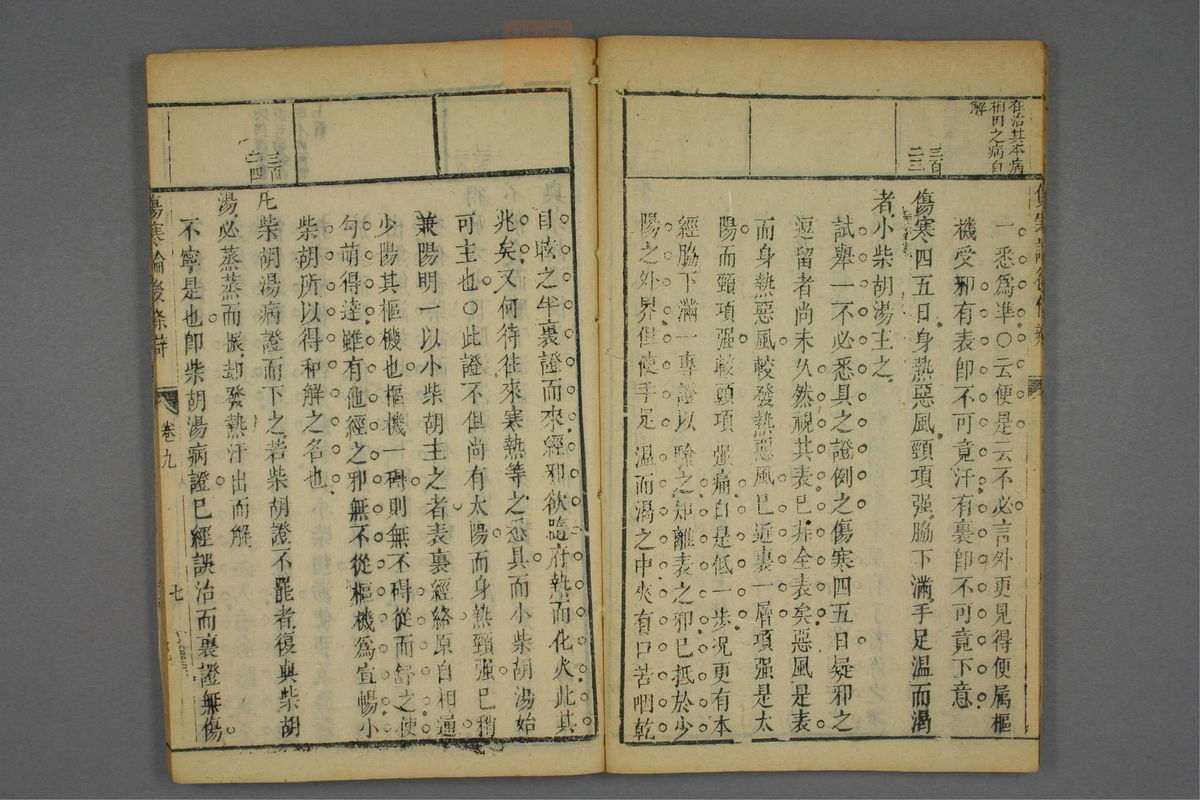 在治其本病
相因之病自
解
三百
二三
一悉爲準○云便是云不必言外更見得便属樞
機受邪有表卽不可竟汗有裏卽不可竟下意
傷寒四五日身熱惡風頸項强脇下滿手足温而渴
者小柴胡湯主之
試舉一不必悉具之證例之傷寒四五日疑邪之
逗留者尚未久然視其表已非全表矣惡風是表
而身熱惡風較發熱惡風已近裏一層項强是太
陽而頸項强較頭項强痛自是低一步况更有本
經脇下滿一專證以驗之知離表之邪已抵於少
陽之外界但使手足温而渴之中夾有口苦咽乾
目眩之半裏證而來經邪欲臨府熱而化火此其
兆矣又何待往來寒熱等之悉具而小柴胡湯始
可主也○此證不但尚有太陽而身熱頸强已稍
兼陽明一以小柴胡主之者表裏經絡原自相通
少陽其樞機也樞機一碍則無不碍從而舒之使
勾萌得達雖有他經之邪無不從樞機爲宣暢小
柴胡所以得和解之名也
三百
二四
凡柴胡湯病證而下之若柴胡證不罷者復與柴胡
湯必蒸蒸而振却發熱汗出而解
不寧是也卽柴胡湯病證已經誤治而裏證無傷
傷寒論後條辯
卷九
七